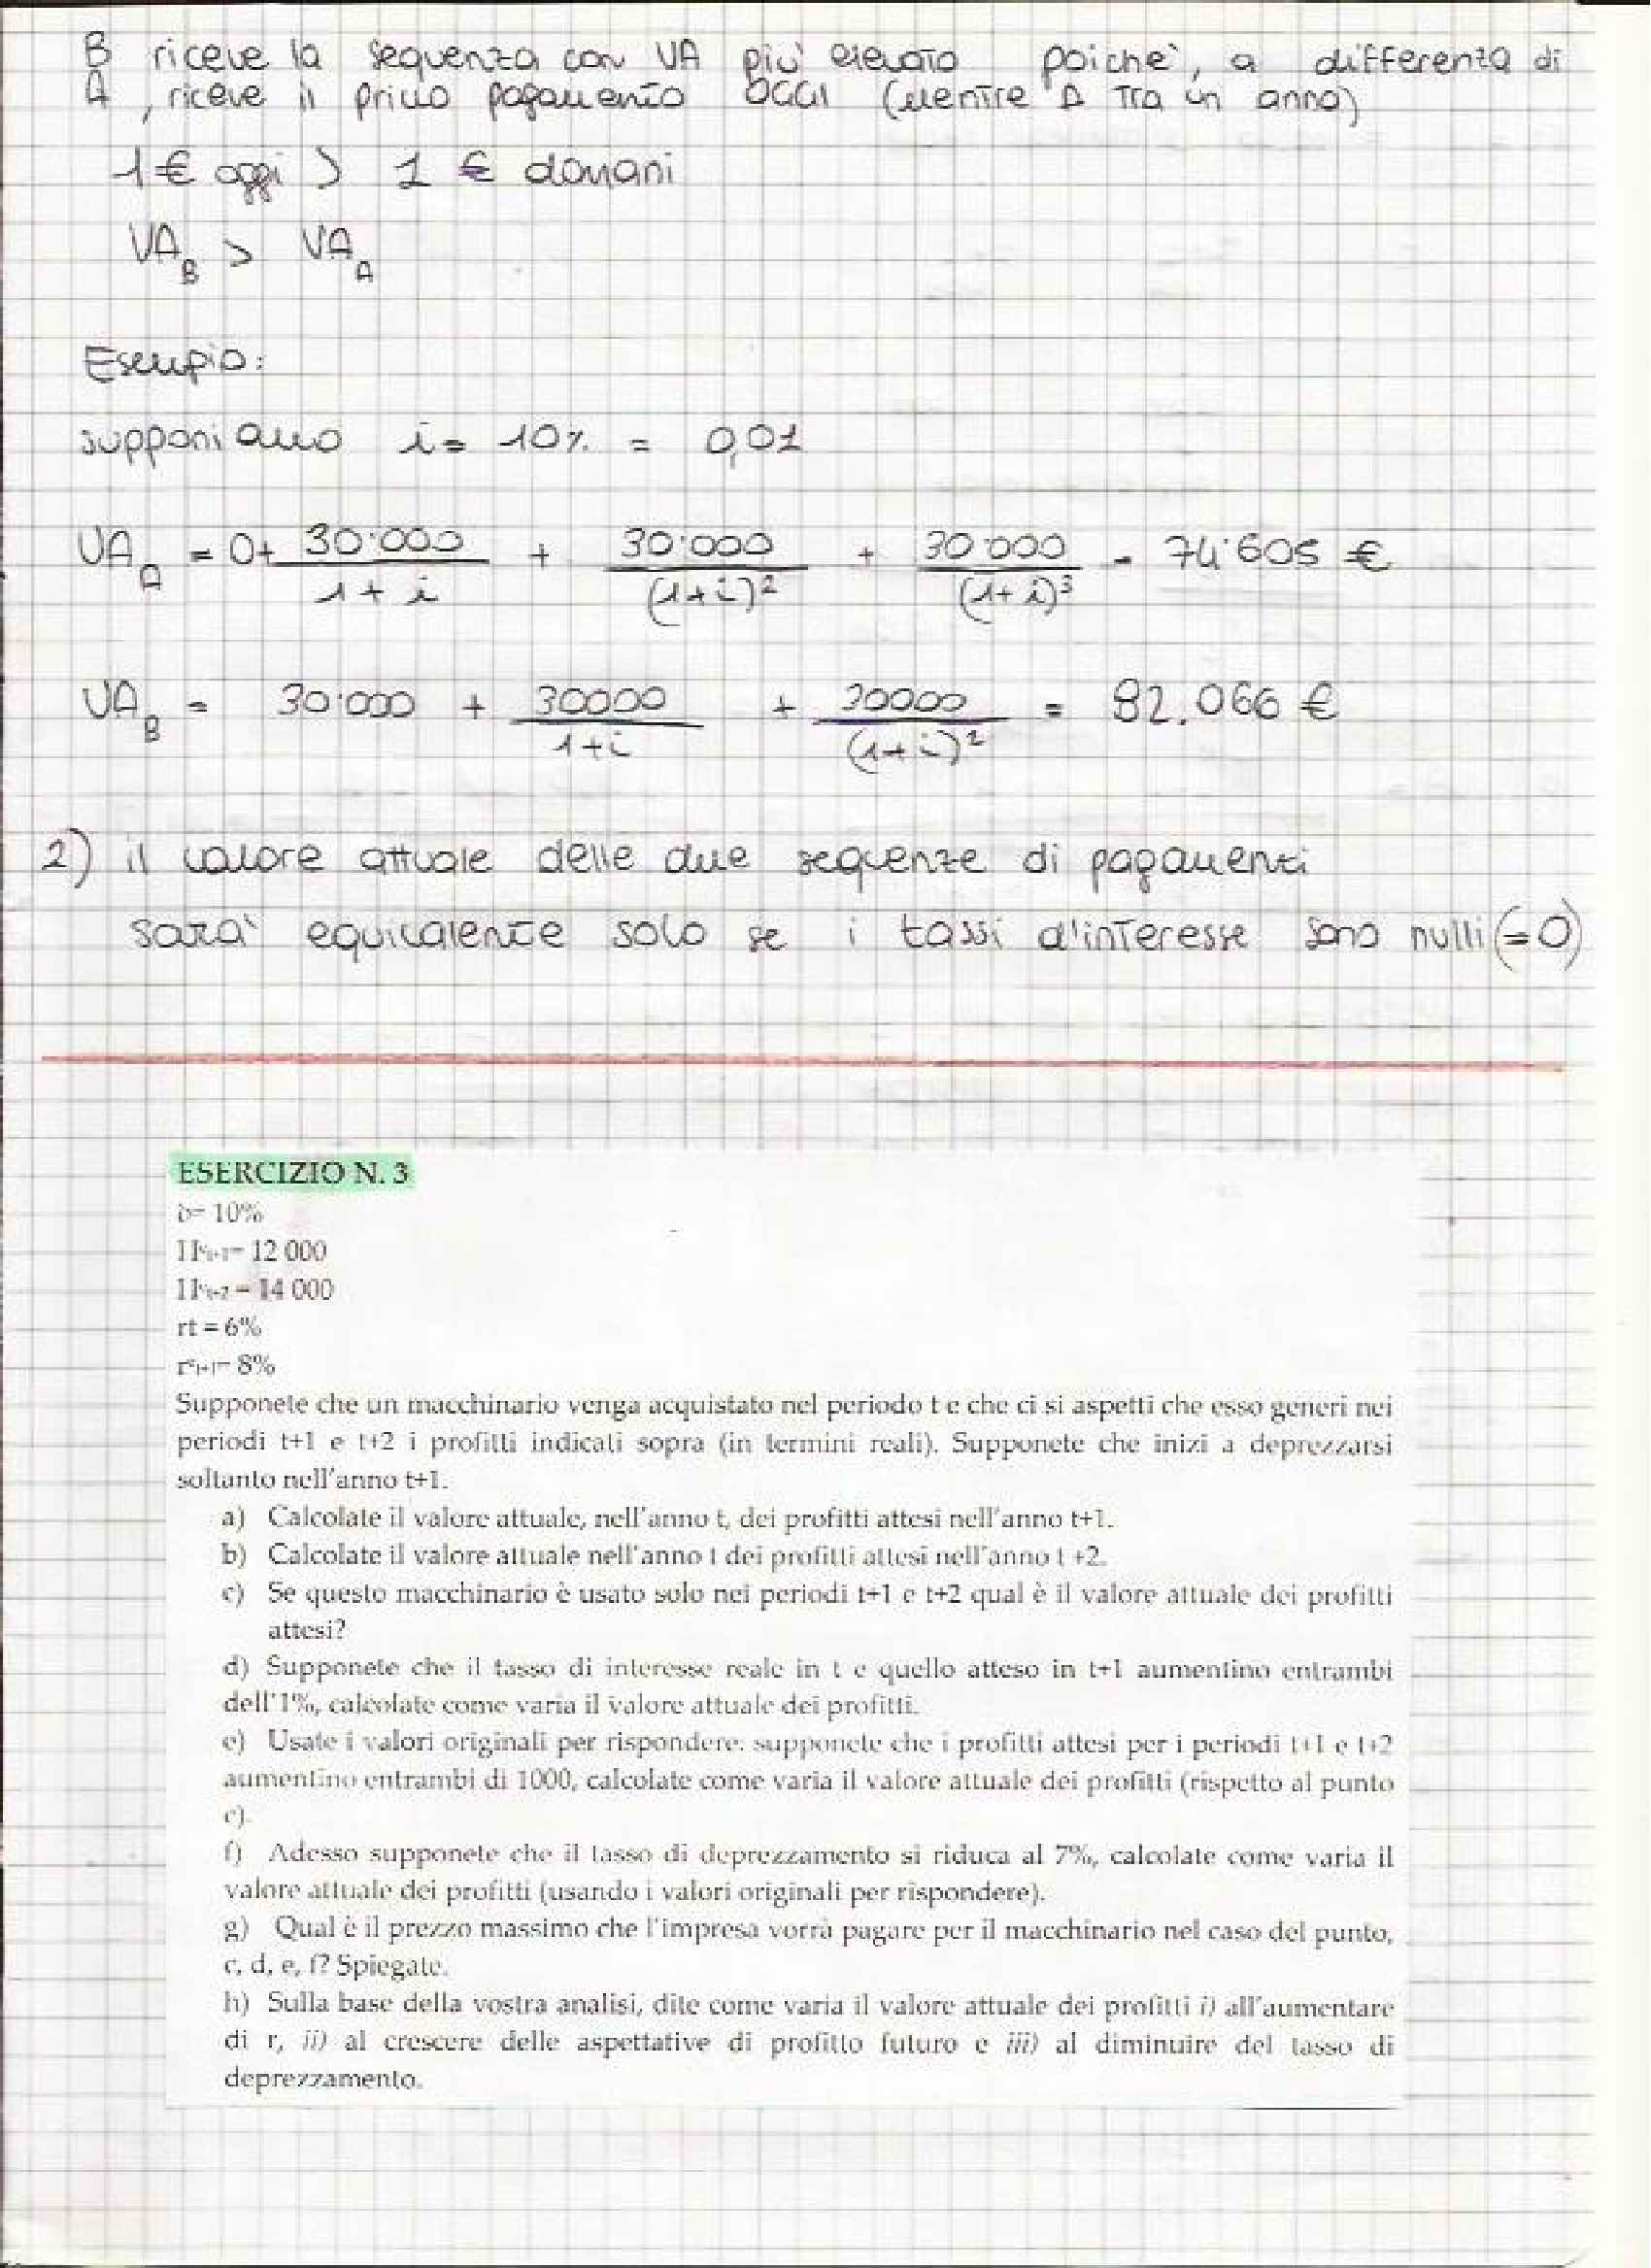 B riceve la sequenza con VA più elevato poichè, a differenza di
A, riceve il primo pagamento OGGI (mentre A tra un anno)
1 € oggi > 1 € domani
VA_B > VA_A
Esempio:
supponiamo i = 10% = 0,01
VA_A = 0 + 30'000 / (1 + i) + 30'000 / (1+i)² + 30'000 / (1+i)³ = 74'605 €
VA_B = 30'000 + 30000 / (1+i) + 30000 / (1+i)² = 82.066 €
2) il valore attuale delle due sequenze di pagamenti
sarà equivalente solo se i tassi d'interesse sono nulli (=0)
ESERCIZIO N. 3
δ= 10%
Πᵉt+1= 12 000
Πᵉt+2 = 14 000
rt = 6%
rᵉt+1= 8%
Supponete che un macchinario venga acquistato nel periodo t e che ci si aspetti che esso generi nei
periodi t+1 e t+2 i profitti indicati sopra (in termini reali). Supponete che inizi a deprezzarsi
soltanto nell'anno t+1.
a) Calcolate il valore attuale, nell'anno t, dei profitti attesi nell'anno t+1.
b) Calcolate il valore attuale nell'anno t dei profitti attesi nell'anno t +2.
c) Se questo macchinario è usato solo nei periodi t+1 e t+2 qual è il valore attuale dei profitti
attesi?
d) Supponete che il tasso di interesse reale in t e quello atteso in t+1 aumentino entrambi
dell'1%, calcolate come varia il valore attuale dei profitti.
e) Usate i valori originali per rispondere: supponete che i profitti attesi per i periodi t+1 e t+2
aumentino entrambi di 1000, calcolate come varia il valore attuale dei profitti (rispetto al punto
c).
f) Adesso supponete che il tasso di deprezzamento si riduca al 7%, calcolate come varia il
valore attuale dei profitti (usando i valori originali per rispondere).
g) Qual è il prezzo massimo che l'impresa vorrà pagare per il macchinario nel caso del punto,
c, d, e, f? Spiegate.
h) Sulla base della vostra analisi, dite come varia il valore attuale dei profitti i) all'aumentare
di r, ii) al crescere delle aspettative di profitto futuro e iii) al diminuire del tasso di
deprezzamento.